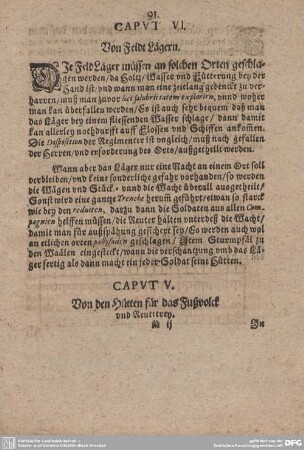 91.
CAPVT VI.
Von Feldt Lägern.
DIe Feld Läger müssen an solchen Orten geschla-
gen werden/ da Holtz/ Wasser vnd Fütterung bey der
Hand ist/ vnd wann man eine zeitlang gedenckt zu ver-
harren/ muß man zuvor loci salubritatem explorirn, vnnd woher
man kan überfallen werden/ Es ist auch sehr bequem daß man
das Läger bey einem fliessenden Wasser schlage/ dann damit
kan allerley nothdurfft auff Flossen vnd Schiffen ankom̃en.
Die Disposition der Regimenter ist vngleich/ muß nach gefallen
der Herren/ vnd erforderung des Orts/ außgetheilt werden.
Wann aber das Läger nur eine Nacht an einem Ort soll
verbleiben/ vnd keine sonderliche gefahr vorhanden/ so werden
die Wägen vnd Stück vnnd die Wacht überall ausgetheilt/
Sonst wird eine gantze Trenche herum geführt/ etwan so starck
wie bey den redouten, darzu dann die Soldaten aus allen Com-
pagnien helffen müssen/ die Reuter halten vnterdeß die Wacht/
damit man für außspähung gesichert sey/ Es werden auch wol
an etlichen orten pallysaden geschlagen/ Item Sturmpfäl zu
den Waallen eingesteckt/ wann die verschantzung vnd das Lä-
ger fertig als dann macht ein jeder Soldat seine Hütten.
CAPVT V.
Von den Hütten für das Fußvolck
vnd Reuterey.
M ij
In